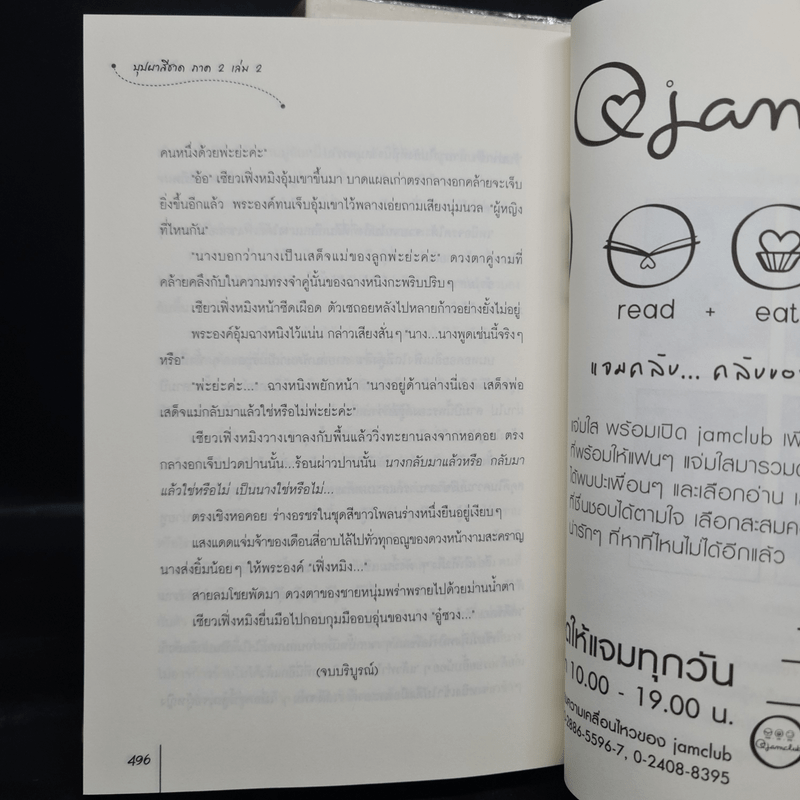 บุปผาสีชาด ภาค 2 เล่ม 2
คนหนึ่งด้วยพ่ะย่ะค่ะ"
"อ้อ" เซียวเฟิ่งหมิงอุ้มเขาขึ้นมา บาดแผลเก่าตรงกลางอกคล้ายจะเจ็บ
ยิ่งขึ้นอีกแล้ว พระองค์ทนเจ็บอุ้มเขาไว้พลางเอ่ยถามเสียงนุ่มนวล "ผู้หญิง
ที่ไหนกัน"
"นางบอกว่านางเป็นเสด็จแม่ของลูกพ่ะย่ะค่ะ" ดวงตาคู่งามที่
คล้ายคลึงกับในความทรงจำคู่นั้นของฉางหนิงกะพริบปริบๆ
เซียวเฟิ่งหมิงหน้าซีดเผือด ตัวเซถอยหลังไปหลายก้าวอย่างยั้งไม่อยู่
พระองค์อุ้มฉางหนิงไว้แน่น กล่าวเสียงสั่นๆ "นาง...นางพูดเช่นนี้จริงๆ
หรือ"
"พ่ะย่ะค่ะ..." ฉางหนิงพยักหน้า "นางอยู่ด้านล่างนี่เอง เสด็จพ่อ
เสด็จแม่กลับมาแล้วใช่หรือไม่พ่ะย่ะค่ะ"
เซียวเฟิ่งหมิงวางเขาลงกับพื้นแล้ววิ่งทะยานลงจากหอคอย ตรง
กลางอกเจ็บปวดปานนั้น...ร้อนผ่าวปานนั้น นางกลับมาแล้วหรือ กลับมา
แล้วใช่หรือไม่ เป็นนางใช่หรือไม่...
ตรงเชิงหอคอย ร่างอรชรในชุดสีขาวโพลนร่างหนึ่งยืนอยู่เงียบๆ
แสงแดดแจ่มจ้าของเดือนสี่อาบไล้ไปทั่วทุกอณูของดวงหน้างามสะคราญ
นางส่งยิ้มน้อยๆ ให้พระองค์ "เฟิ่งหมิง..."
สายลมโชยพัดมา ดวงตาของชายหนุ่มพร่าพรายไปด้วยม่านน้ำตา
เซียวเฟิ่งหมิงยื่นมือไปกอบกุมมืออบอุ่นของนาง "อู๋ซวง..."
(จบบริบูรณ์)
496
@jam
read + eat
แจมคลับ... คลับของ
แจ่มใส พร้อมเปิด jamclub เพื่
ที่พร้อมให้แฟนๆ แจ่มใสมารวมต
ได้พบปะเพื่อนๆ และเลือกอ่าน
ที่ชื่นชอบได้ตามใจ เลือกสะสมค
น่ารักๆ ที่หาที่ไหนไม่ได้อีกแล้ว
ให้แจมทุกวัน
10.00 - 19.00 น.
ความเคลื่อนไหวของ jamclub
2886-5596-7, 0-2408-8395
@jamclub